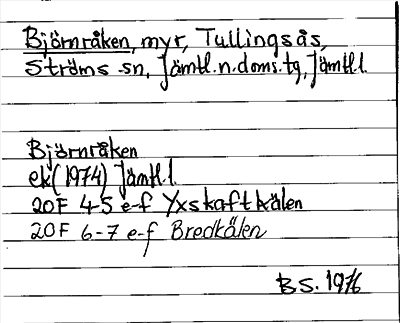 Björnråken, myr, Tullingsås,
Ströms sn, Jämtl.n.doms.tg, Jämtl.l.
Björnråken
ek (1974) Jämtl.l.
20F 4-5 e-f Yxskaftkälen
20F 6-7 e-f Bredkälen
BS. 1976